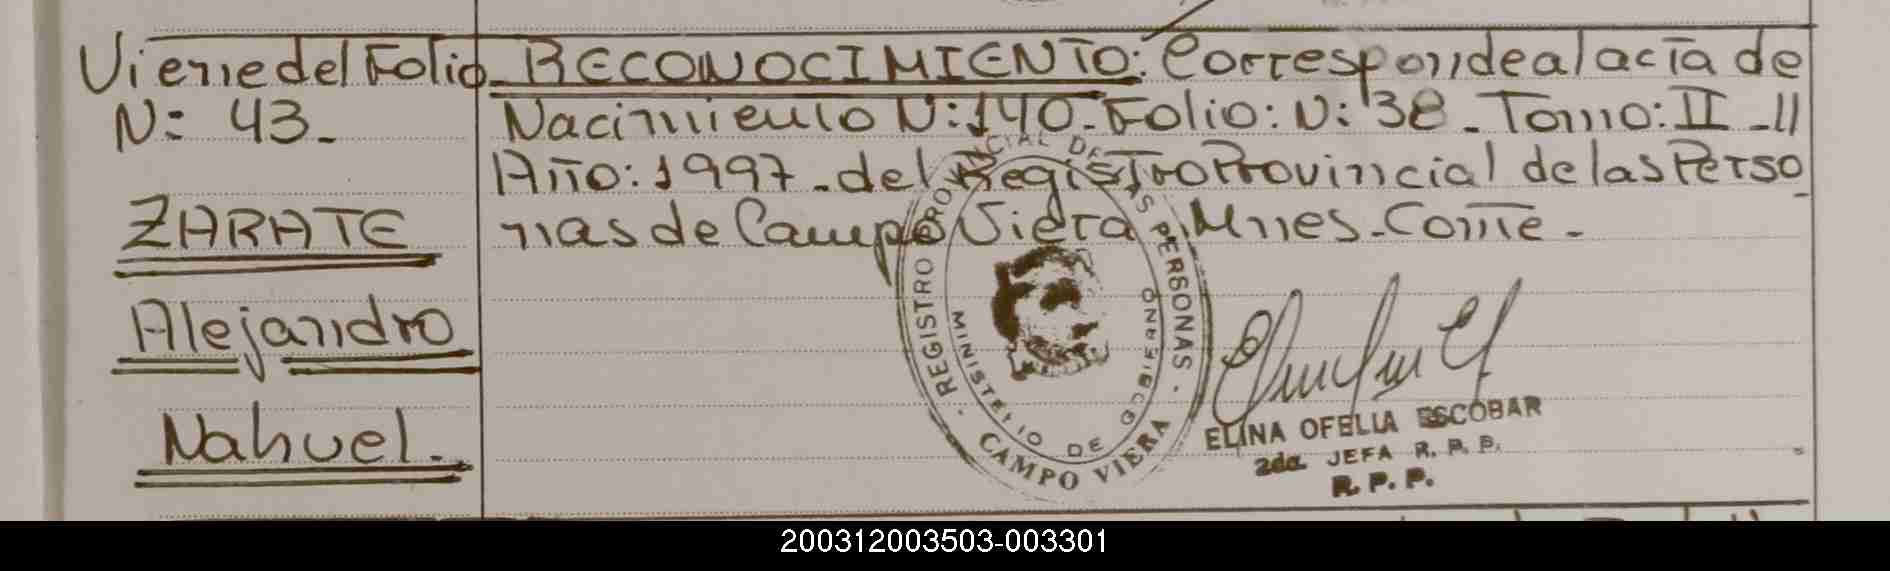 Viene del Folio
N: 43.
ZARATE
Alejandro
Nahuel.
RECONOCIMIENTO: Corresponde al acta de
Nacimiento N: 140. Folio: N: 38. Tomo: II -
Año: 1997. del Registro Provincial de las Perso
nas de Campo Viera, Mnes. Conte.
· REGISTRO PROVINCIAL DE LAS PERSONAS ·
MINISTERIO DE GOBIERNO
CAMPO VIERA
ELINA OFELIA ESCOBAR
2da JEFA R. P. P.
R. P. P.
200312003503-003301